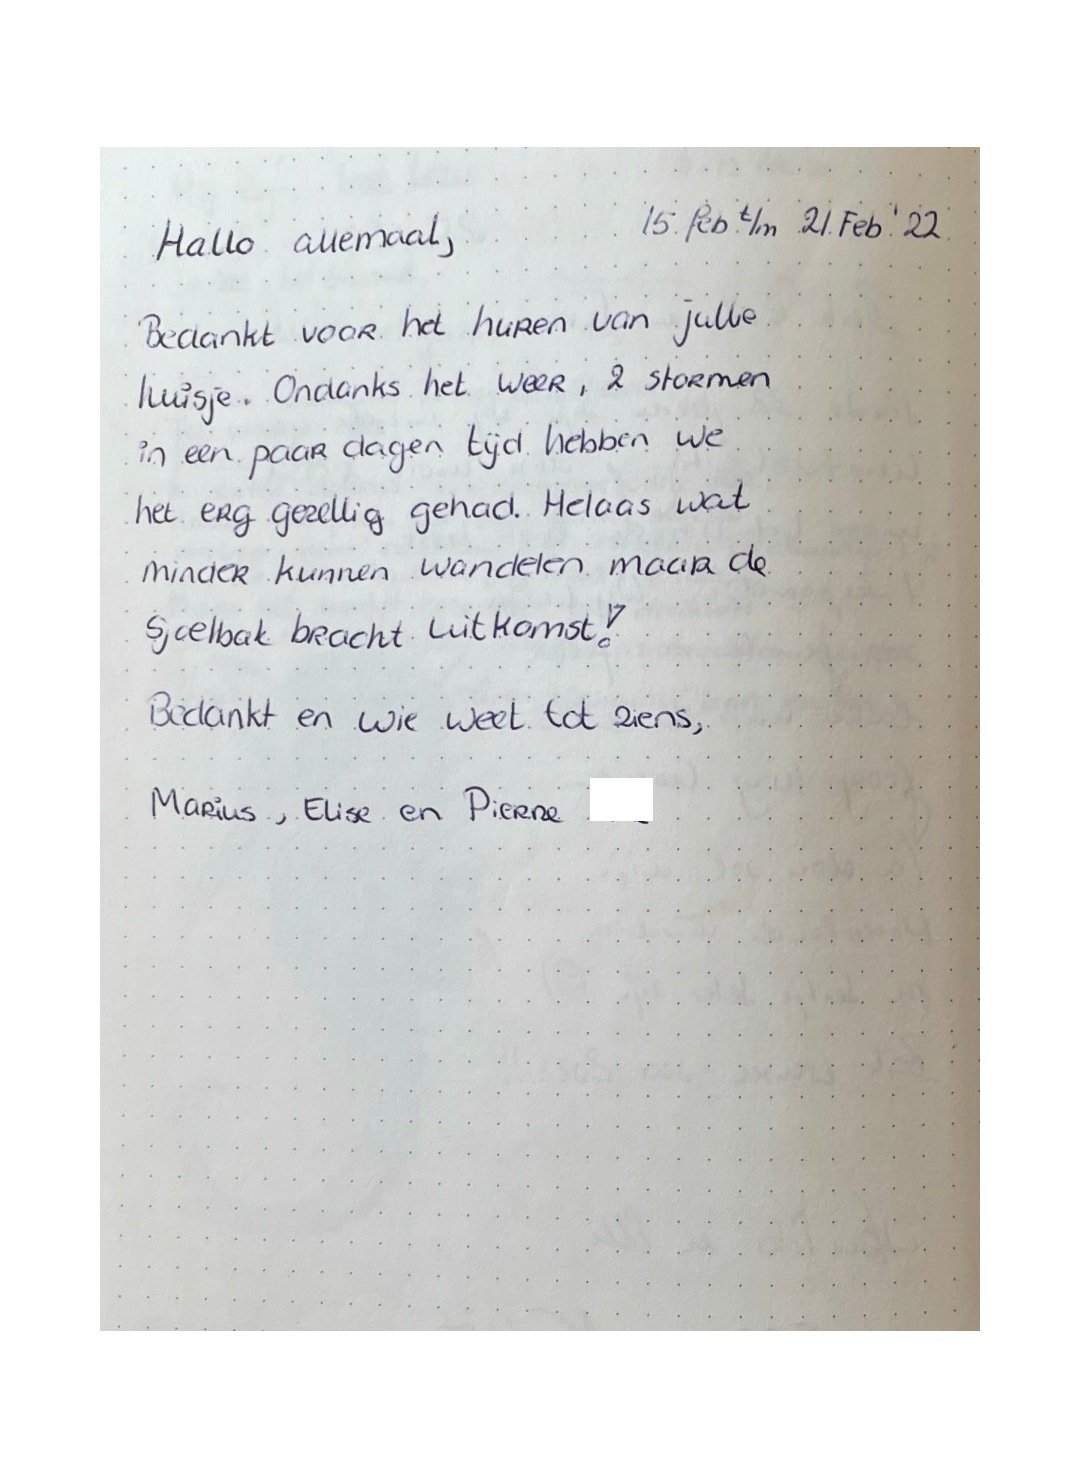 15 feb t/m 21 Feb '22
Hallo allemaal,
Bedankt voor het huren van jullie
huisje. Ondanks het weer, 2 stormen
in een paar dagen tijd hebben we
het erg gezellig gehad. Helaas wat
minder kunnen wandelen maar de
Sjoelbak bracht uitkomst!
Bedankt en wie weet tot ziens,
Marius, Elise en Pierre